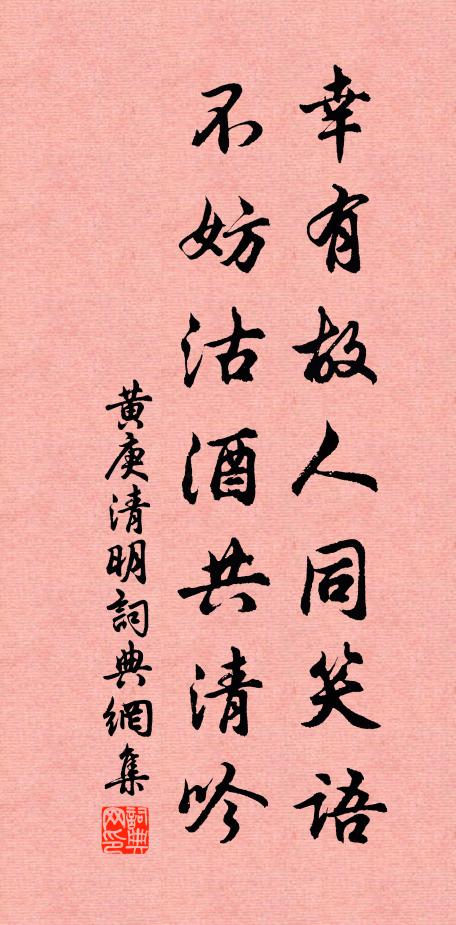 幸有故人同笑語
不妨沽酒共清吟
黄庚清明詞典網集
詞典网印